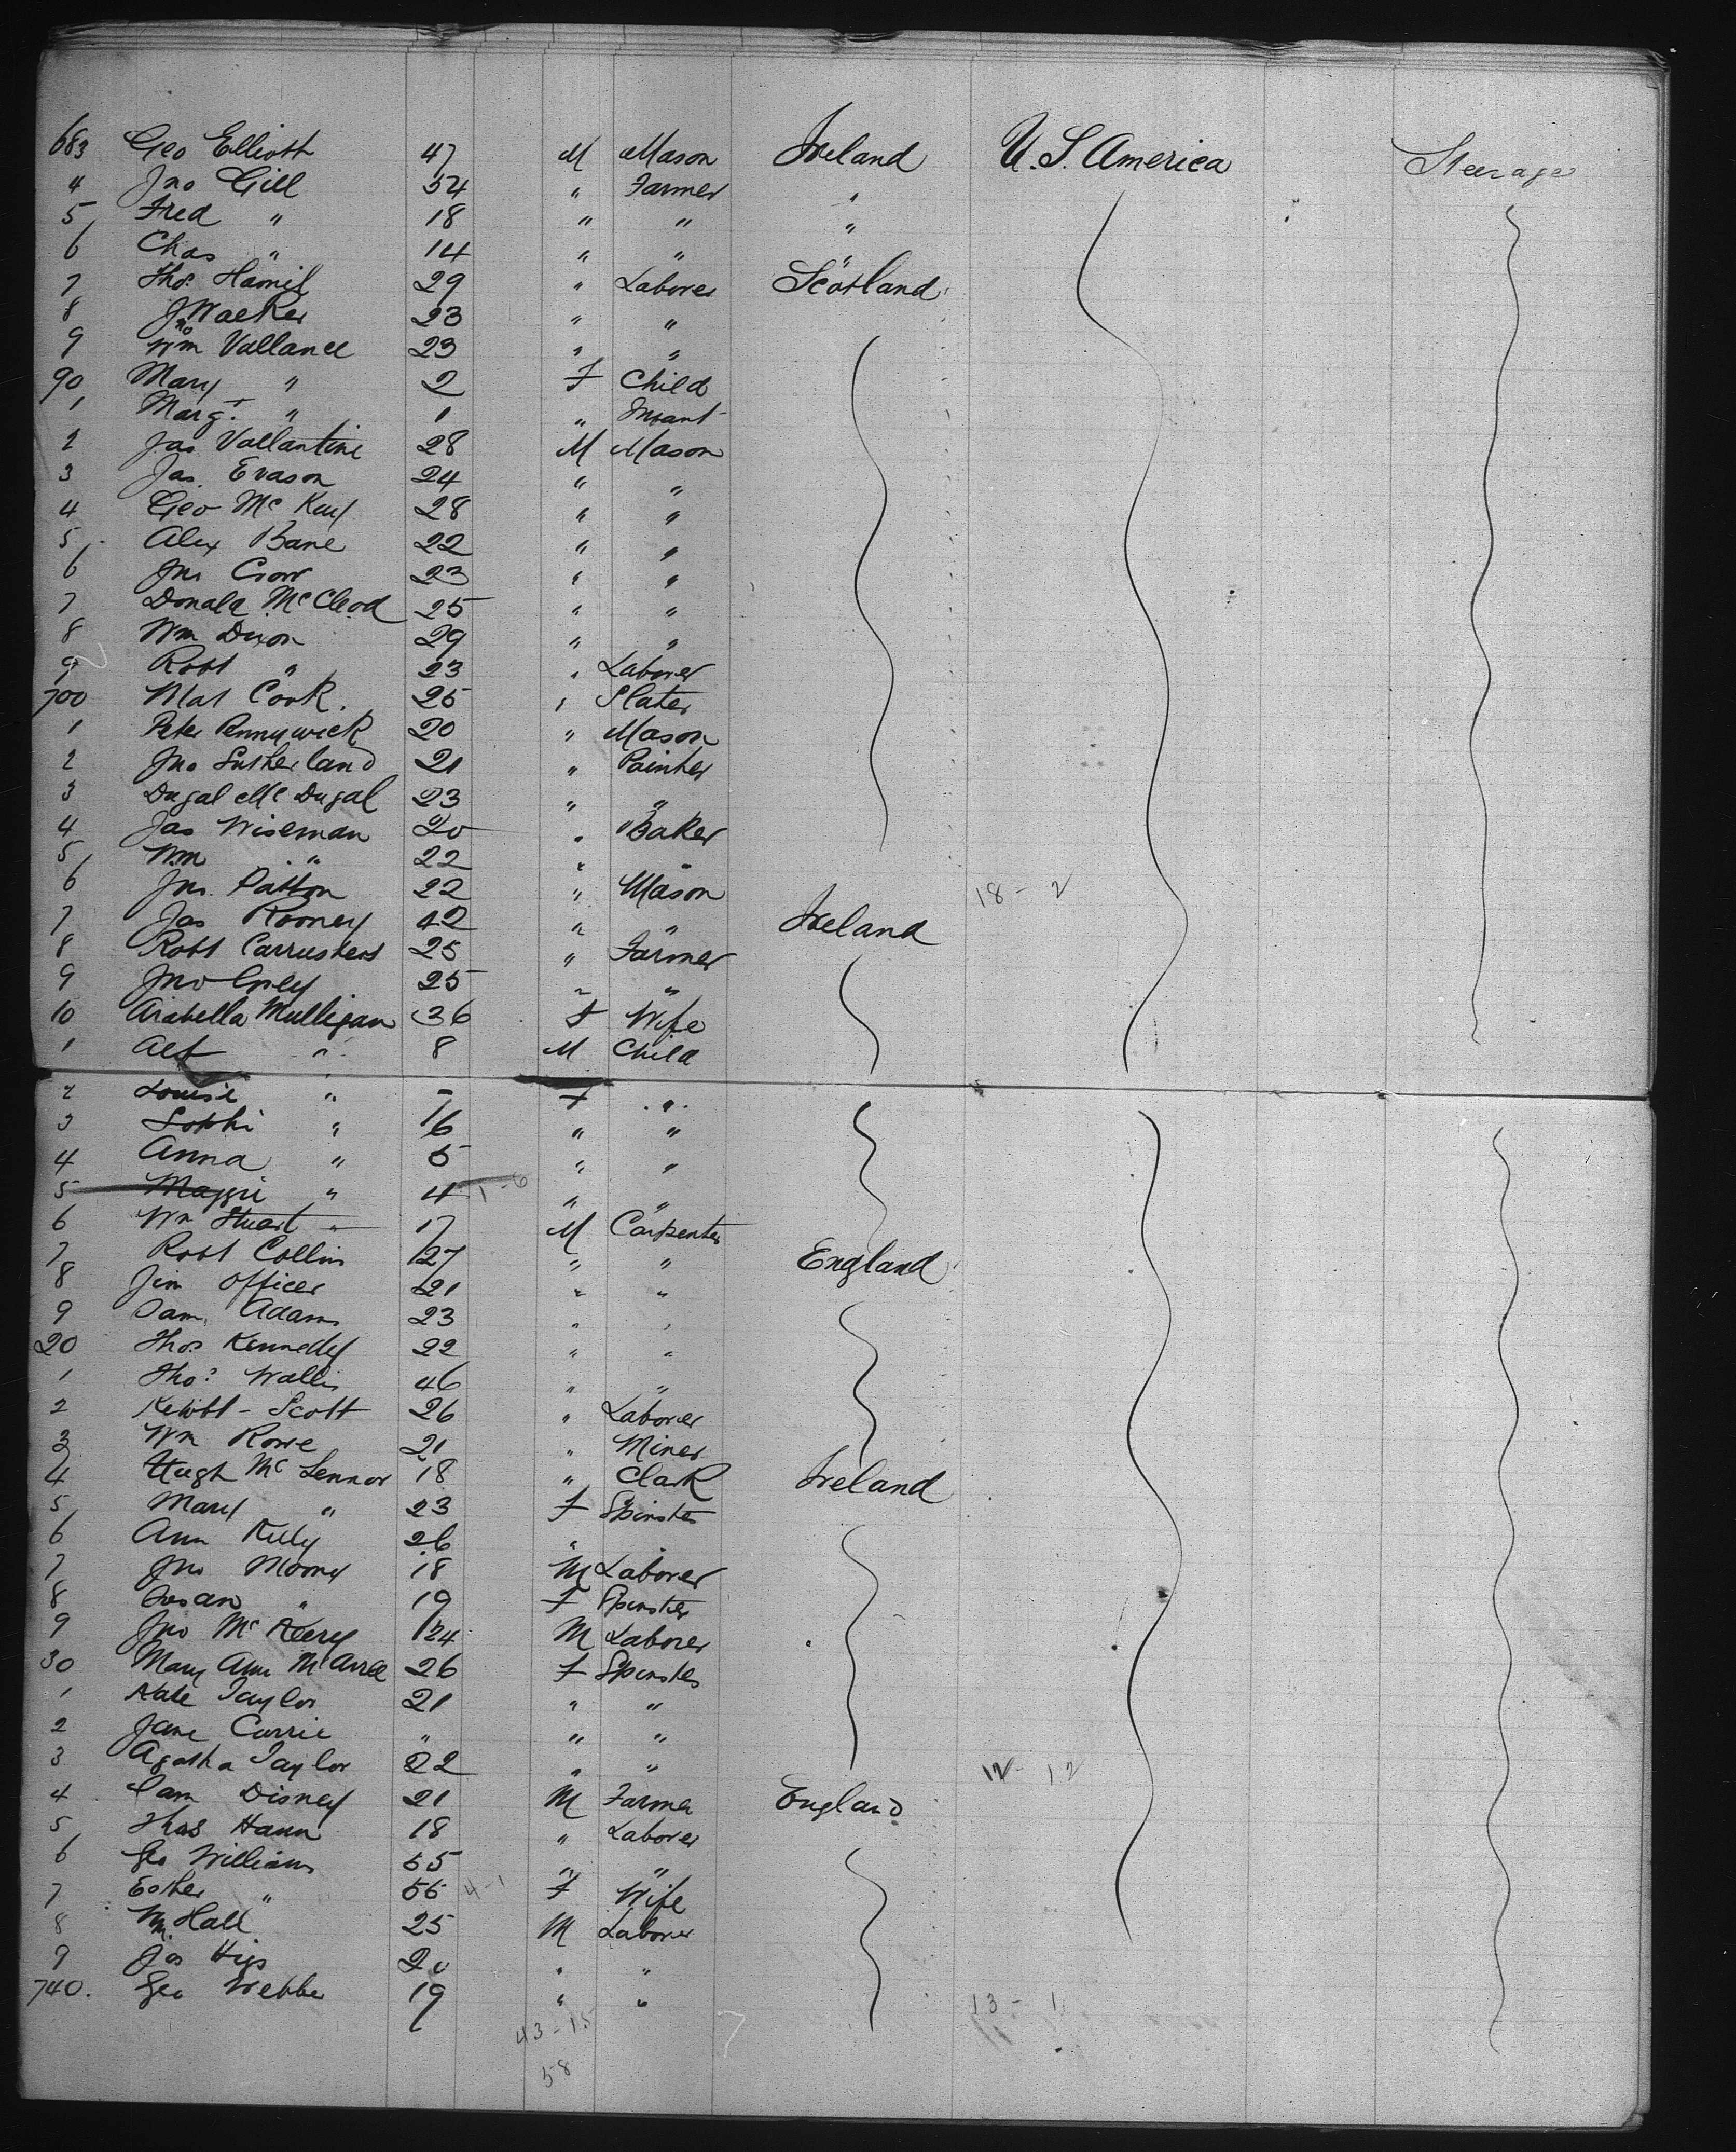 683 Geo Elliott 47 M Mason Ireland U.S. America Steerage
4 Jno Gill 54 " Farmer "
5 Fred " 18 " " "
6 Chas " 14 " " "
7 Thos Hamil 29 " Laborer Scotland
8 Jno Walker 23 " "
9 Wm Vallance 23 " "
90 Mary " 2 F Child
1 Margt " 1 " Infant
2 Jas Vallantine 28 M Mason
3 Jas. Evason 24 " "
4 Geo McKay 28 " "
5 Alex Bane 22 " "
6 Jno Crow 23 " "
7 Donald McCleod 25 " "
8 Wm Dixon 29 " "
9 Robt " 23 " Laborer
700 Mat Cook. 25 " Slater
1 Peter Pennywick 20 " Mason
2 Jno Sutherland 21 " Painter
3 Dugal Mc Dugal 23 " "
4 Jas Wiseman 20 " Baker
5 Wm " 22 " "
6 Jno. Patton 22 " Mason 18 - 2
7 Jas Rooney 42 " " Ireland
8 Robt Carruthers 25 " Farmer
9 Jno Grey 25 " "
10 Arabella Mulligan 36 F Wife
1 Alf " 8 M Child
2 Louise " 7 F "
3 Sophi " 6 " "
4 Anna " 5 " "
5 Maggie " 4 1-6 " "
6 Wm Stuart " 17 M Carpenter
7 Robt Collins 27 " " England
8 Jim Officer 21 " "
9 Sam. Adams 23 " "
20 Thos Kennedy 22 " "
1 Thos Wallis 46 " "
2 Scott 26 " Laborer
3 Wm Rowe 21 " Miner
4 Hugh McLennor 18 " Clark Ireland
5 Mary " 23 F Spinster
6 Ann Kelly 26 "
7 Jno Mooney 18 M Laborer
8 Susan " 19 F Spinster
9 Jno McKeery 24 M Laborer
30 Mary Ann 26 F Spinster
1 Kate Taylor 21 " "
2 Jane Currie " " "
3 Agatha Taylor 22 " " 12
4 Sam Disney 21 M Farmer England
5 Thos Hann 18 " Laborer
6 Geo Williams 55 " "
7 Esther " 55 4-1 F Wife
8 Wm Hall 25 M Laborer
9 Jos Higs 20 " "
740. Geo Webber 19 " " 13 - 1
43-15
58